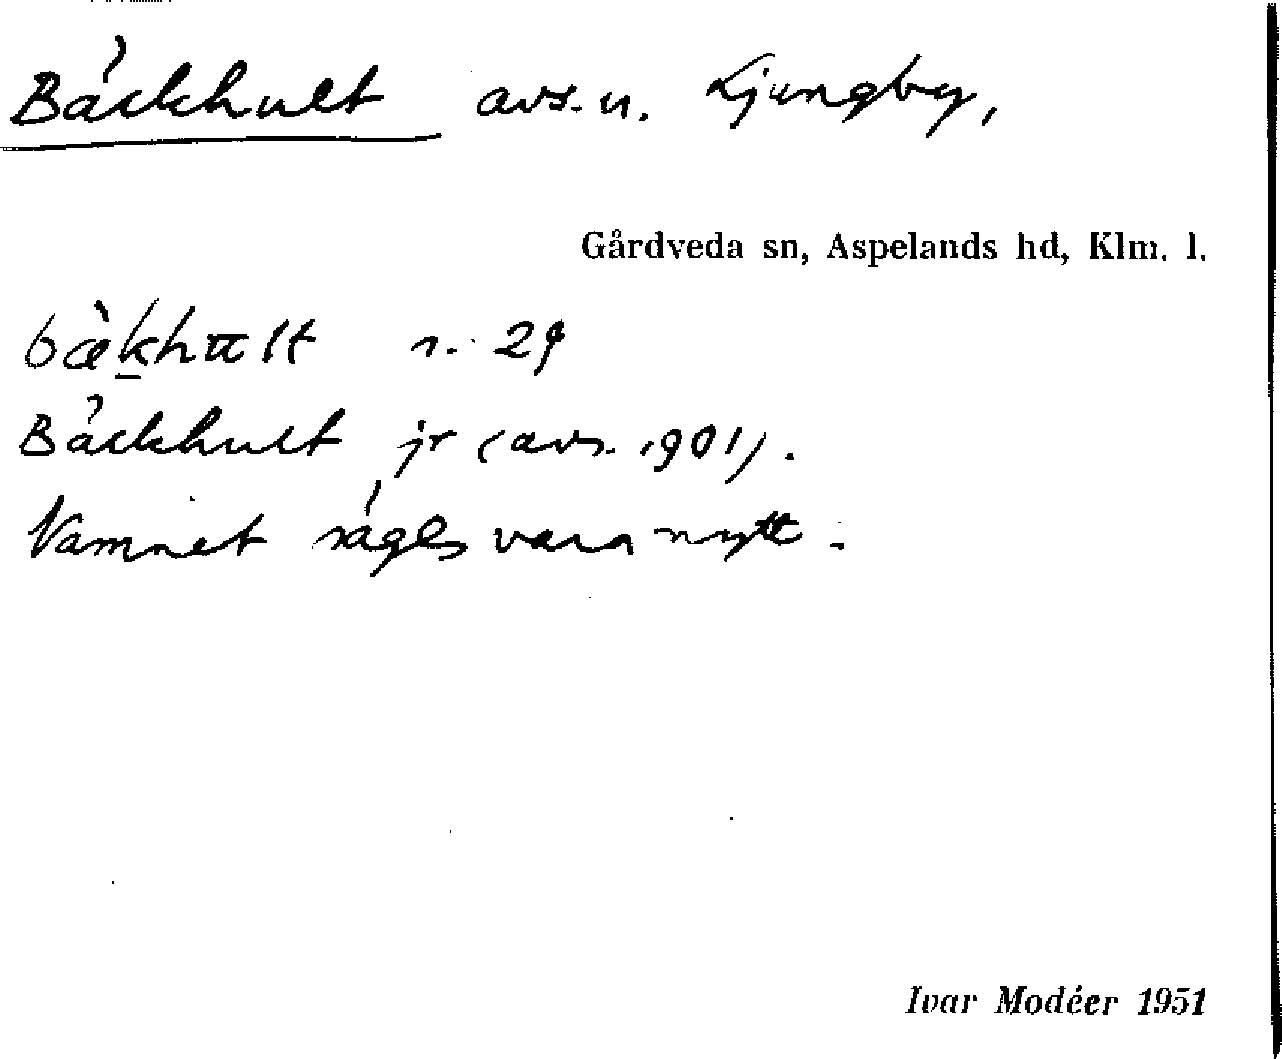 Bäckhult avs. u. Ljungby,
Gårdveda sn, Aspelands hd, Klm. l.
bæ̀k̲hult n. 29
Bäckhult jr (avs. 1901).
Namnet säges vara nytt.
Ivar Modéer 1951